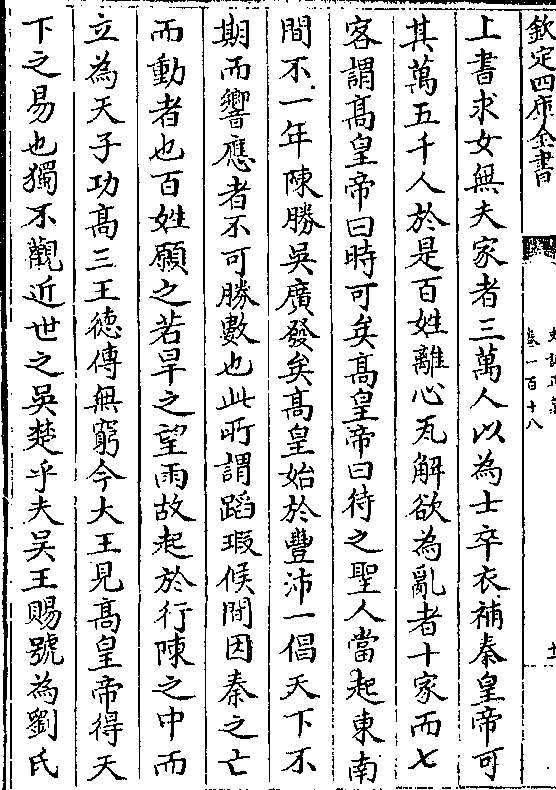 欽定四庫全書
史記正義
卷一百十八
十
上書求女無夫家者三萬人以為士卒衣補秦皇帝可
其萬五千人於是百姓離心瓦解欲為亂者十家而七
客謂髙皇帝曰時可矣髙皇帝曰待之聖人當起東南
間不一年陳勝吳廣發矣髙皇始於豐沛一倡天下不
期而響應者不可勝數也此所謂蹈瑕候間因秦之亡
而動者也百姓願之若旱之望雨故起於行陳之中而
立為天子功髙三王德傳無窮今大王見髙皇帝得天
下之易也獨不觀近世之吳楚乎夫吳王賜號為劉氏